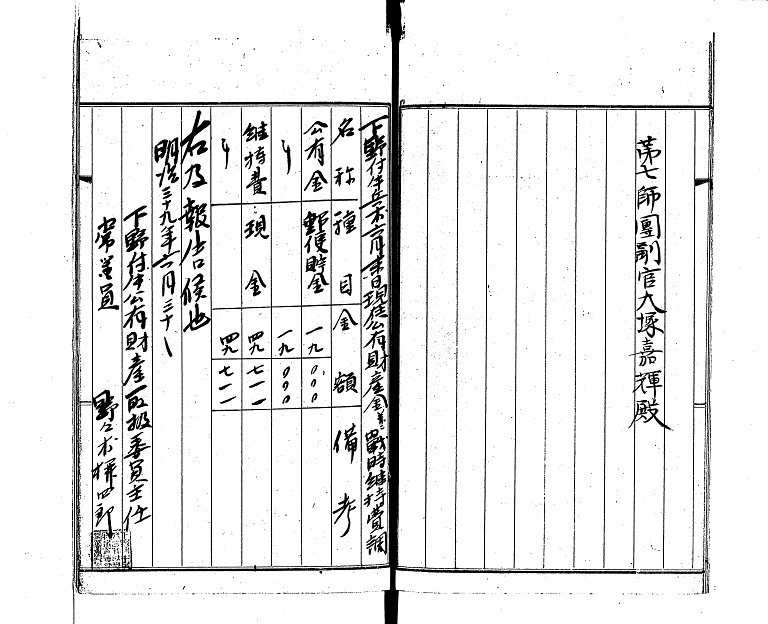 第七師團副官大塚嘉輝殿
下野付牛兵六月末日現在公有財産金並ニ戰時維持費調
名称 種目 金額 備考
公有金 郵便貯金 一九 〇〇〇
〃 一九 〇〇〇
維持費 現金 四九 七一一
〃 四九 七一一
右及報告候也
明治三十九年六月三十
下野付牛公有財産取扱委員主任
常置員 野々木 四郎